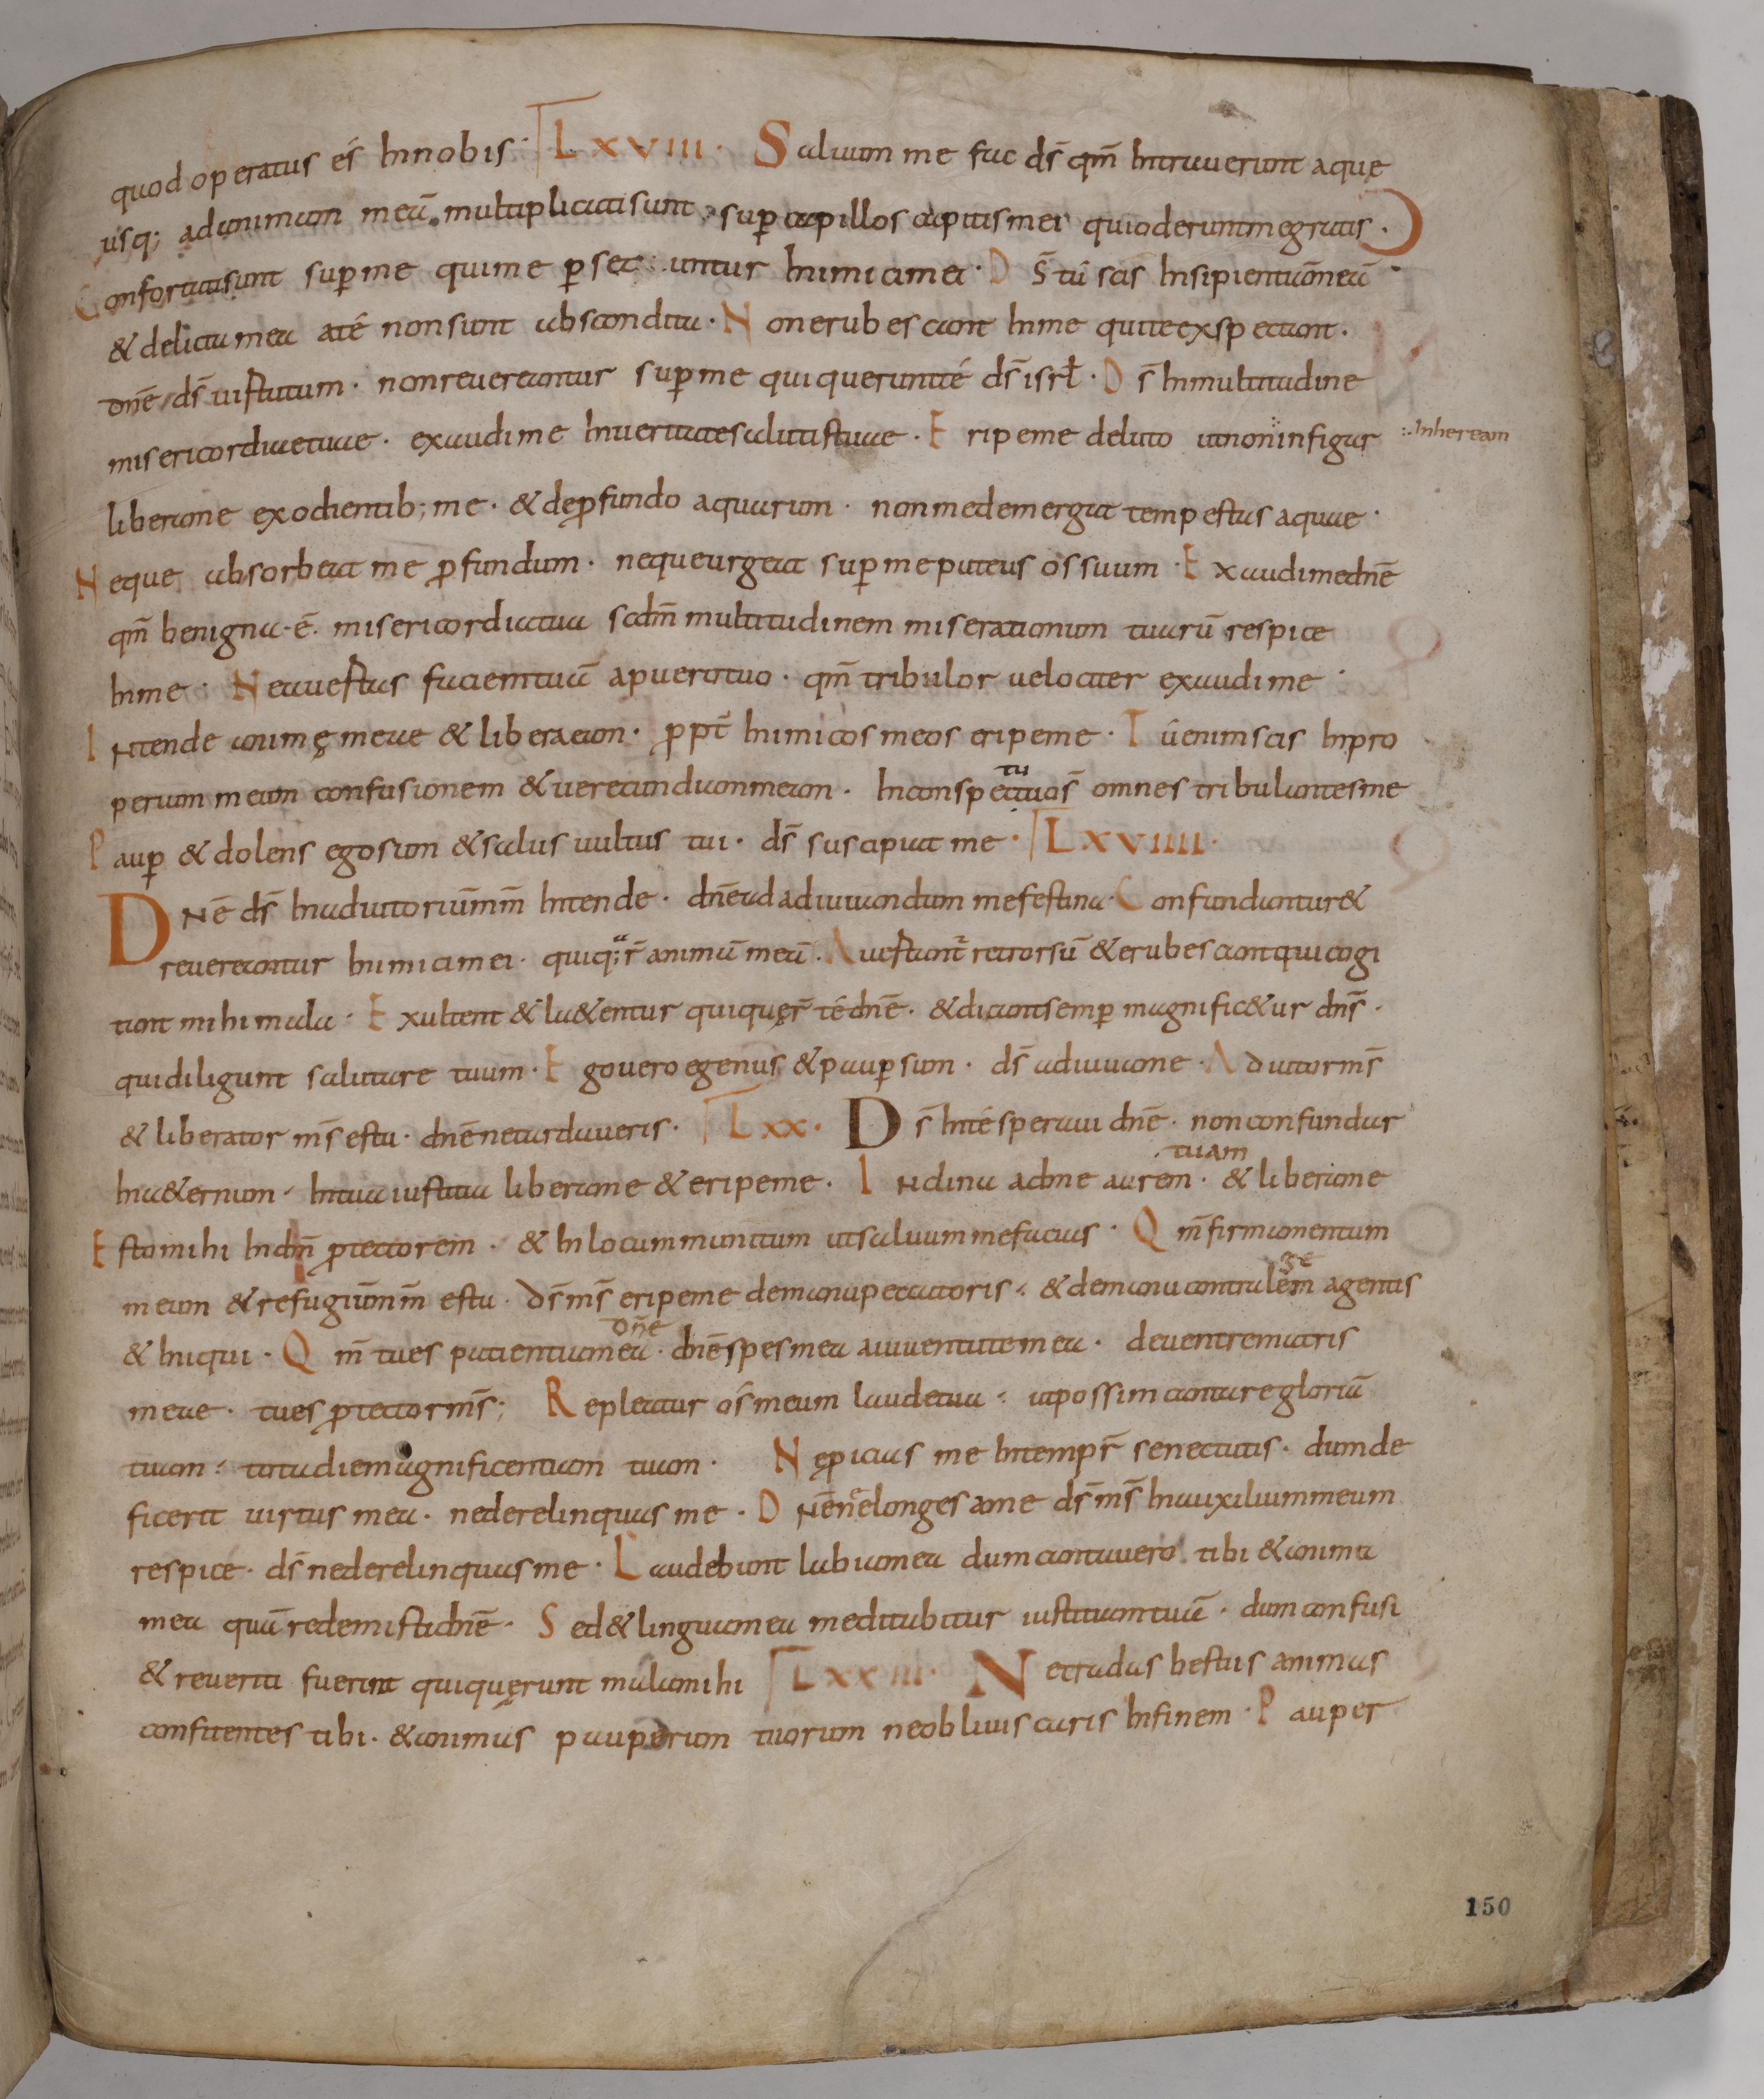 quod operatus és In nobis · LXVIII · Saluum me fac d̄s qm̄ Intrauerunt aquę
usq; ad animam meā. multiplicati sunt super capillos capitis mei qui oderunt me gratis ·
Confortati sunt sup̱ me qui me p̱sec untur Inimici mei · D s̄ tu scis Insipientiā meā
& delicta mea a té non sunt abscondita · Non erubescant In me qui te exspectant ·
dn̄e d̄s uirtutum · non reuereantur sup̱ me qui querunt té d̄s isrl̄ · D s̄ In multitudine
misericordiae tuae · exaudi me In ueritate salutis tuae · Eripe me de luto ut non infigar :·Inheream
libera me ex odientib; me · & de p̱fundo aquarum · non me demergat tempestas aquae ·
Neque absorbeat me p̱fundum · neque urgeat sup̱ me puteus os suum · Exaudi me dn̄e
qm̄ benigna · ē · misericordia tua scdm̄ multitudinem miserationum tuarū respice
In me · Ne auertas faciem tuā a puero tuo · qm̄ tribulor uelociter exaudi me ·
Intende animę meae & libera eam · p̱pt̄ Inimicos meos eripe me · Tú enim scis Inpro
perium meum confusionem & uerecundiam meam · In conspectu tuo s̄ omnes tribulantes me
Paup̱ & dolens ego sum & salus uultus tui · d̄s suscipiat me · LXVIIII ·
DNē d̄s In adiutoriū mm̄ Intende · dn̄e ad adiuuandum me festina · Confundantur &
reuereantur Inimici mei · qui q;r̄ animā meā · Auertant̄ retrorsū & erubescant qui cogi
tant mihi mala · Exultent & la&entur qui quęr̄ té dn̄e · & dicant semp̱ magnific&ur dn̄s ·
qui diligunt salutare tuum · Ego uero egenus & paup̱ sum · d̄s adiuua me · Adiutor m̄s
& liberator m̄s es tu · dn̄e ne tardaueris · LXX · D s̄ In té speraui dn̄e · non confundar
In a&ernum · In tua iustitia libera me & eripe me · Inclina ad me aurem tuam · & libera me
Esto mihi In dm̄ p̱tectorem · & In locum munitum ut saluum me facias · Qm̄ firmamentum
meum & refugiūmm̄ es tu · D̄s m̄s eripe me de manu peccatoris · & de manu contra legem agentis
& Iniqui · Qm̄ tu es patientia mea dn̄e · dn̄e spes mea a iuuentute mea · de uentre matris
meae · tu es p̱tector m̄s; Repleatur ós meum laude tua · ut possim cantare gloriā
tuam · tota die magnificentiam tuam · Ne p̱icias me In tempr̄ senectutis · dum de
ficerit uirtus mea · ne derelinquas me · DNē ne elonges a me d̄s m̄s In auxilium meum
respice · d̄s ne derelinquas me · Laudebunt labia mea dum cantauero tibi & anima
mea quā redemisti dn̄e · Sed & lingua mea meditabitur iustitiam tuā · dum confusi
& reueriti fuerint qui quęrunt mala mihi LXXIII · Ne tradas bestiis animas
confitentes tibi · & animas pauperum tuorum ne obliuiscaris In finem · Pauper
150